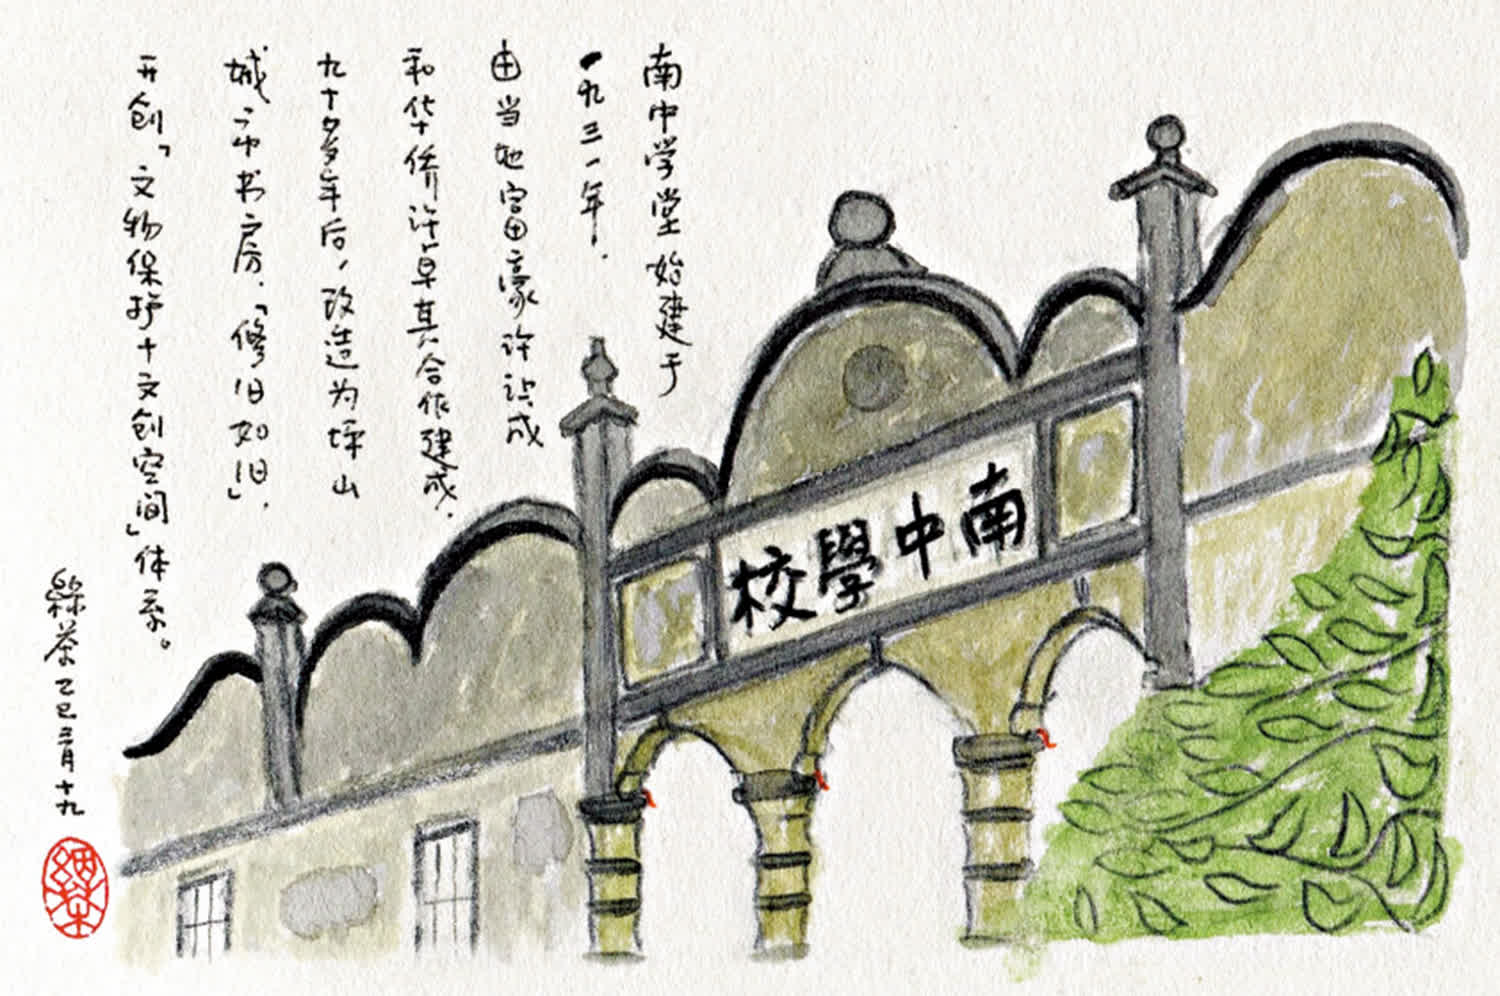 南中学堂始建于
一九三一年.
由当地富豪许让成
和华侨许卓其合作建成.
九十多年后,改造为坪山
城市书房.「修旧如旧」.
开创「文物保护十文创空间」体系。
绿茶乙巳二月十九
南中學校